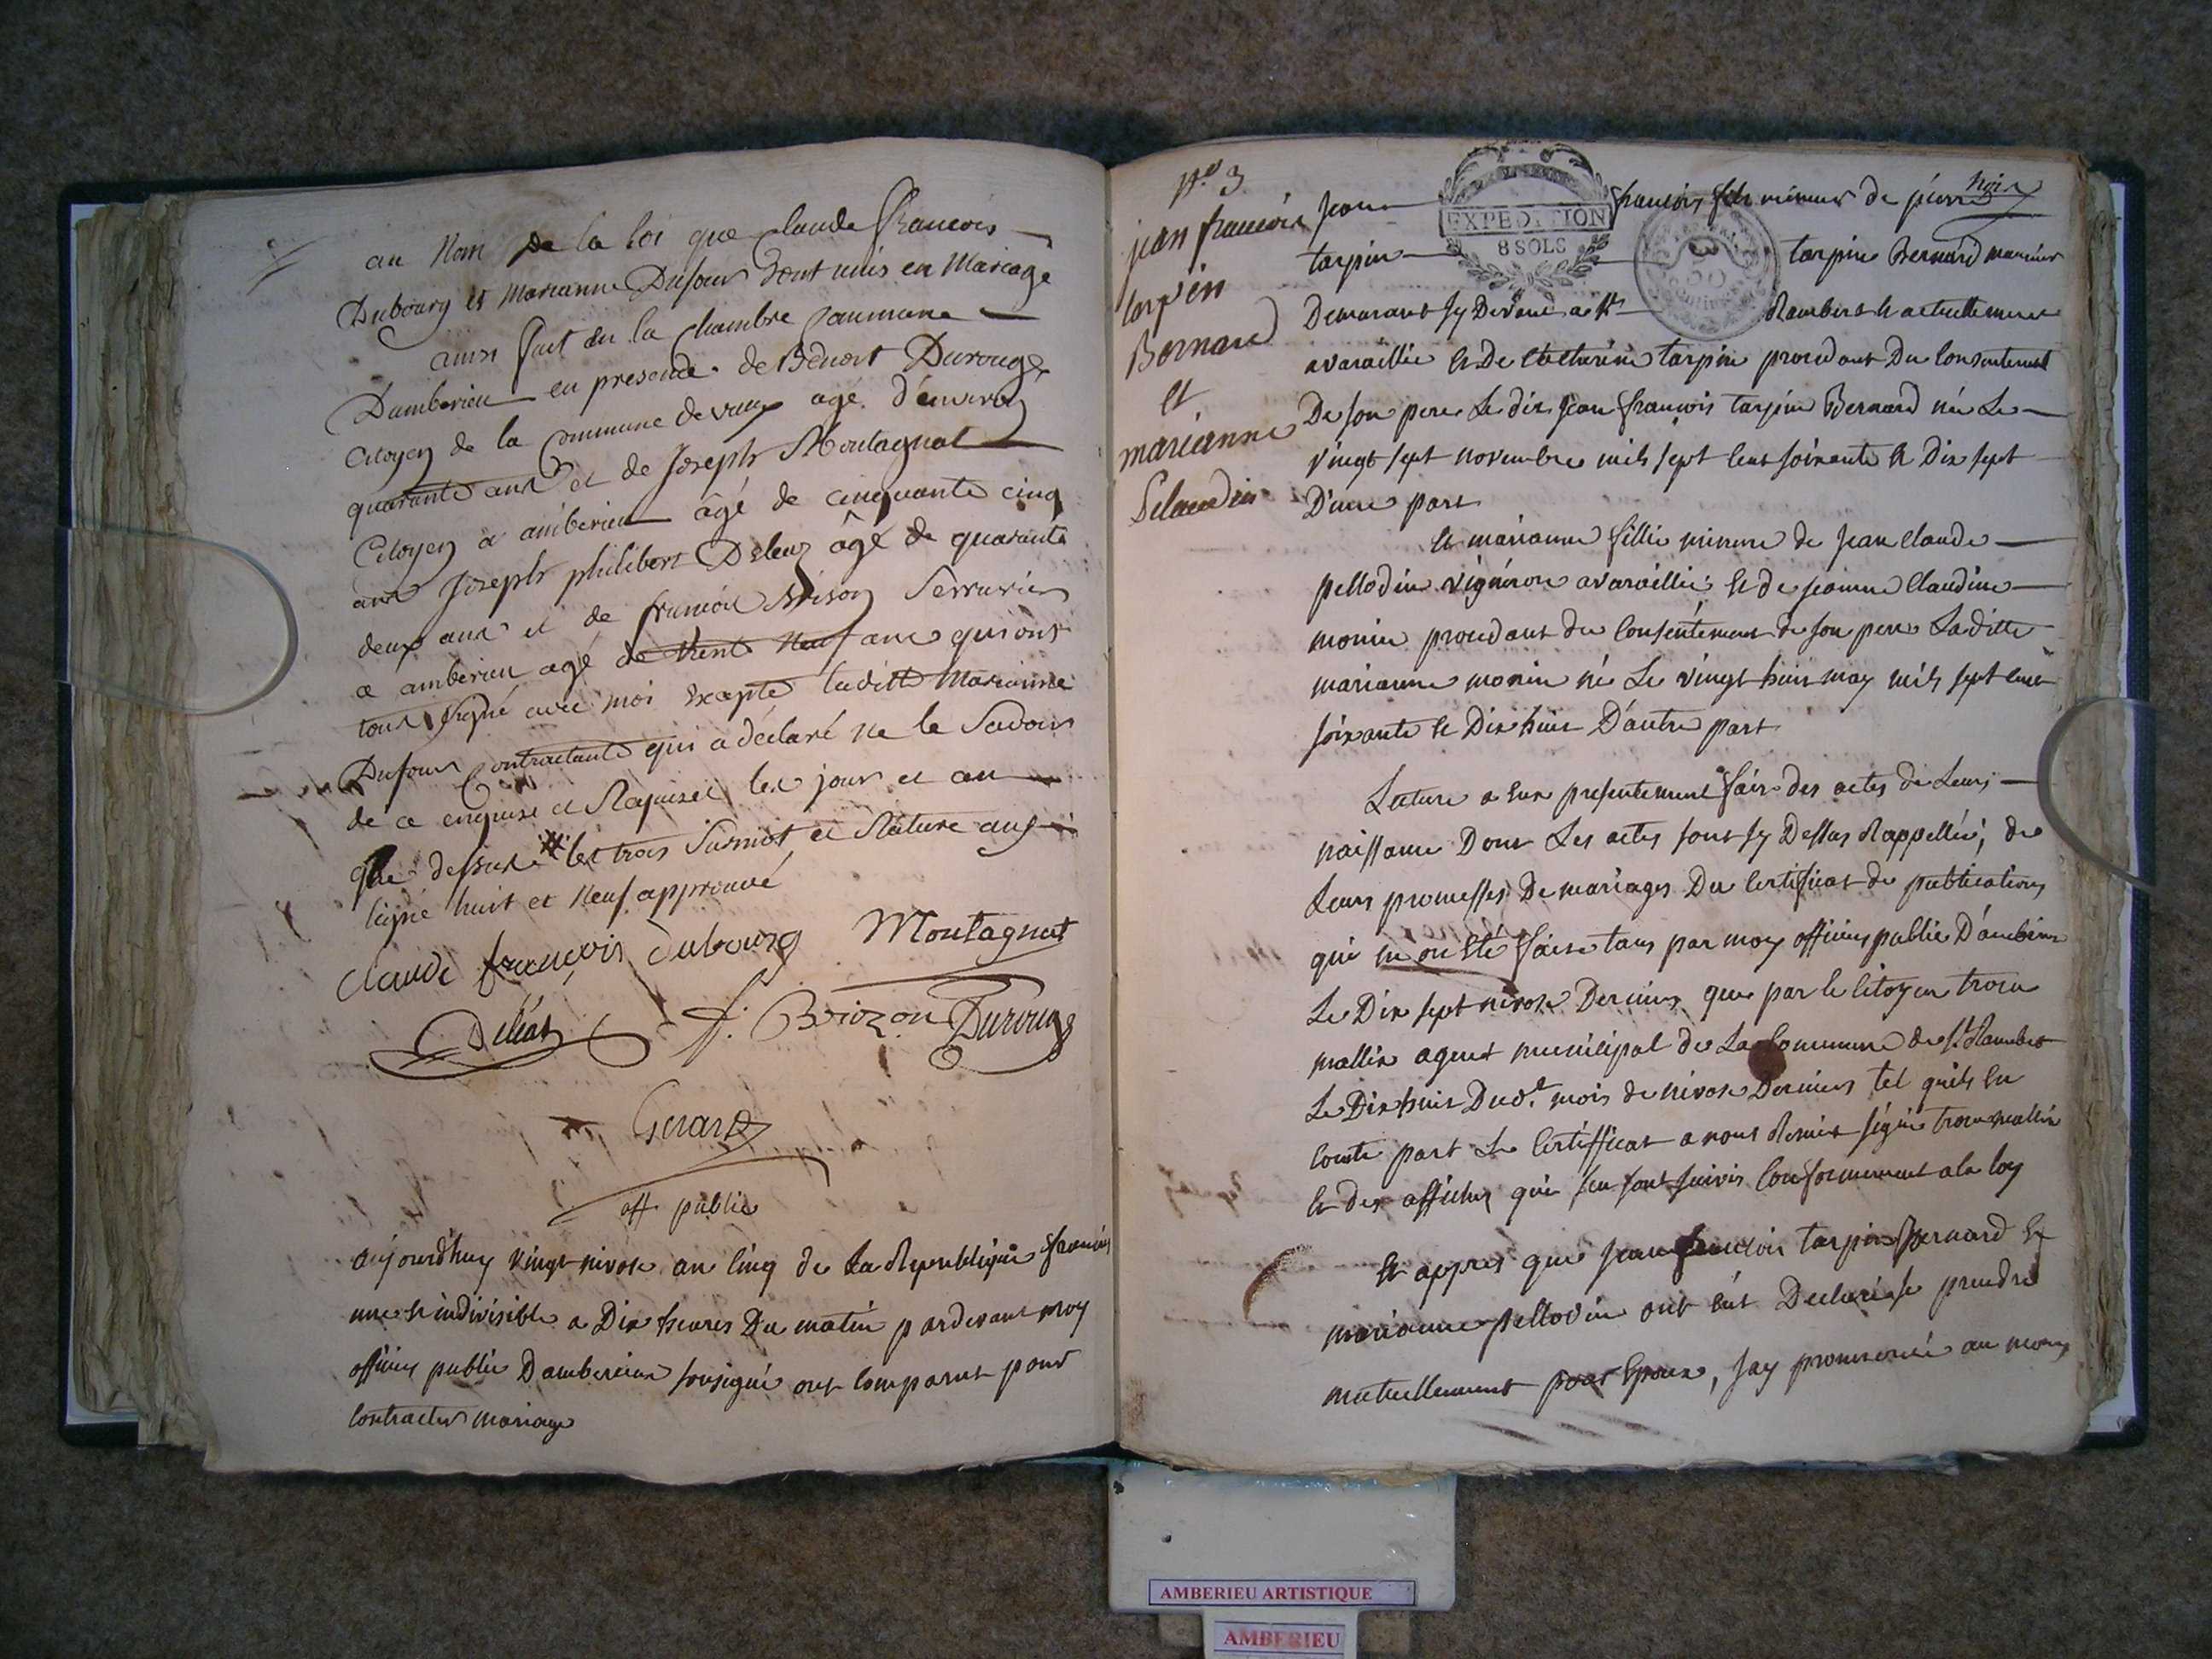 au Nom de la loi que claude francois
Dubourg et marianne Dufour sont unis en Mariage
ainsi fait en la chambre commune
Damberieu en presence de Benoit Durouge
citoyen de la commune de vaux agé d'environ
quarante ans et de Joseph Montagnat
Citoyen a amberieu âgé de cinquante cinq
ans Joseph philibert Deleaz âgé de quarante
deux ans et de francois Brison Serrurier
a amberieu agé de trente neuf ans qui ont
tous signé avec moi excepté laditte Marianne
Dufour Contractante qui a déclaré ne le Savoir
de ce enquise et Requise les jour et an
que dessus les trois Surmot et Rature aux
ligne huit et neuf approuvé
claude françois dubourg Montagnat
Deleaz f. Brizon Durouge
Gerard
off public
aujourd'huy vingt nivose an cinq de La Republique francois
une et indivisible a Dix heures Du matin pardevant moy
officier public Damberieux sousigné ont comparut pour
contracter mariage
N.o 3
jean francois
tarpin
Bernard
et
marianne
Pelaudin
EXPEDITION
8 SOLS
Jean francois fils mineur de pierre
tarpin tarpin Bernard
Demeurant cy Devant a St Rambert et actuellement
avaraillie et De Catherine tarpin procedant Du consentement
De son pere Le dit Jean francois tarpin Bernard né Le
vingt sept novembre mils sept cent soixante et Dix sept
D'une part
et marianne fillie mineure de Jean Claude
pellodin vigneron avaraillie et de jeanne Claudine
monin procedant du Consentement de son pere Laditte
marianne monin né Le vingt huit may mils sept cent
soixante et Dix huit D'autre part
Lecture a eux presentement faire des actes de Leurs
naissance Dont Les actes sont cy Dessus Rappellée, de
Leurs promesses De mariages Du Certificat de publications
qui en on été faire tans par moy officier public D'amberieu
Le Dix sept nivose Dernier que par le Citoyen trocu
mallin agent municipal de La Commune de St Rambert
Le Dix huit Dud.t mois de nivose Dernier tel quils En
conste part Le Certifficat a nous Remit signé trocu mallin
et des affiches qui sen sont suivis Conformement a la loy
Et appres que Jean francois tarpin Bernard Et
marianne pellodin ont eut Declarés se prendre
mutuellement pour Epoux, Jay prononcé au nom
AMBERIEU ARTISTIQUE
AMBERIEU